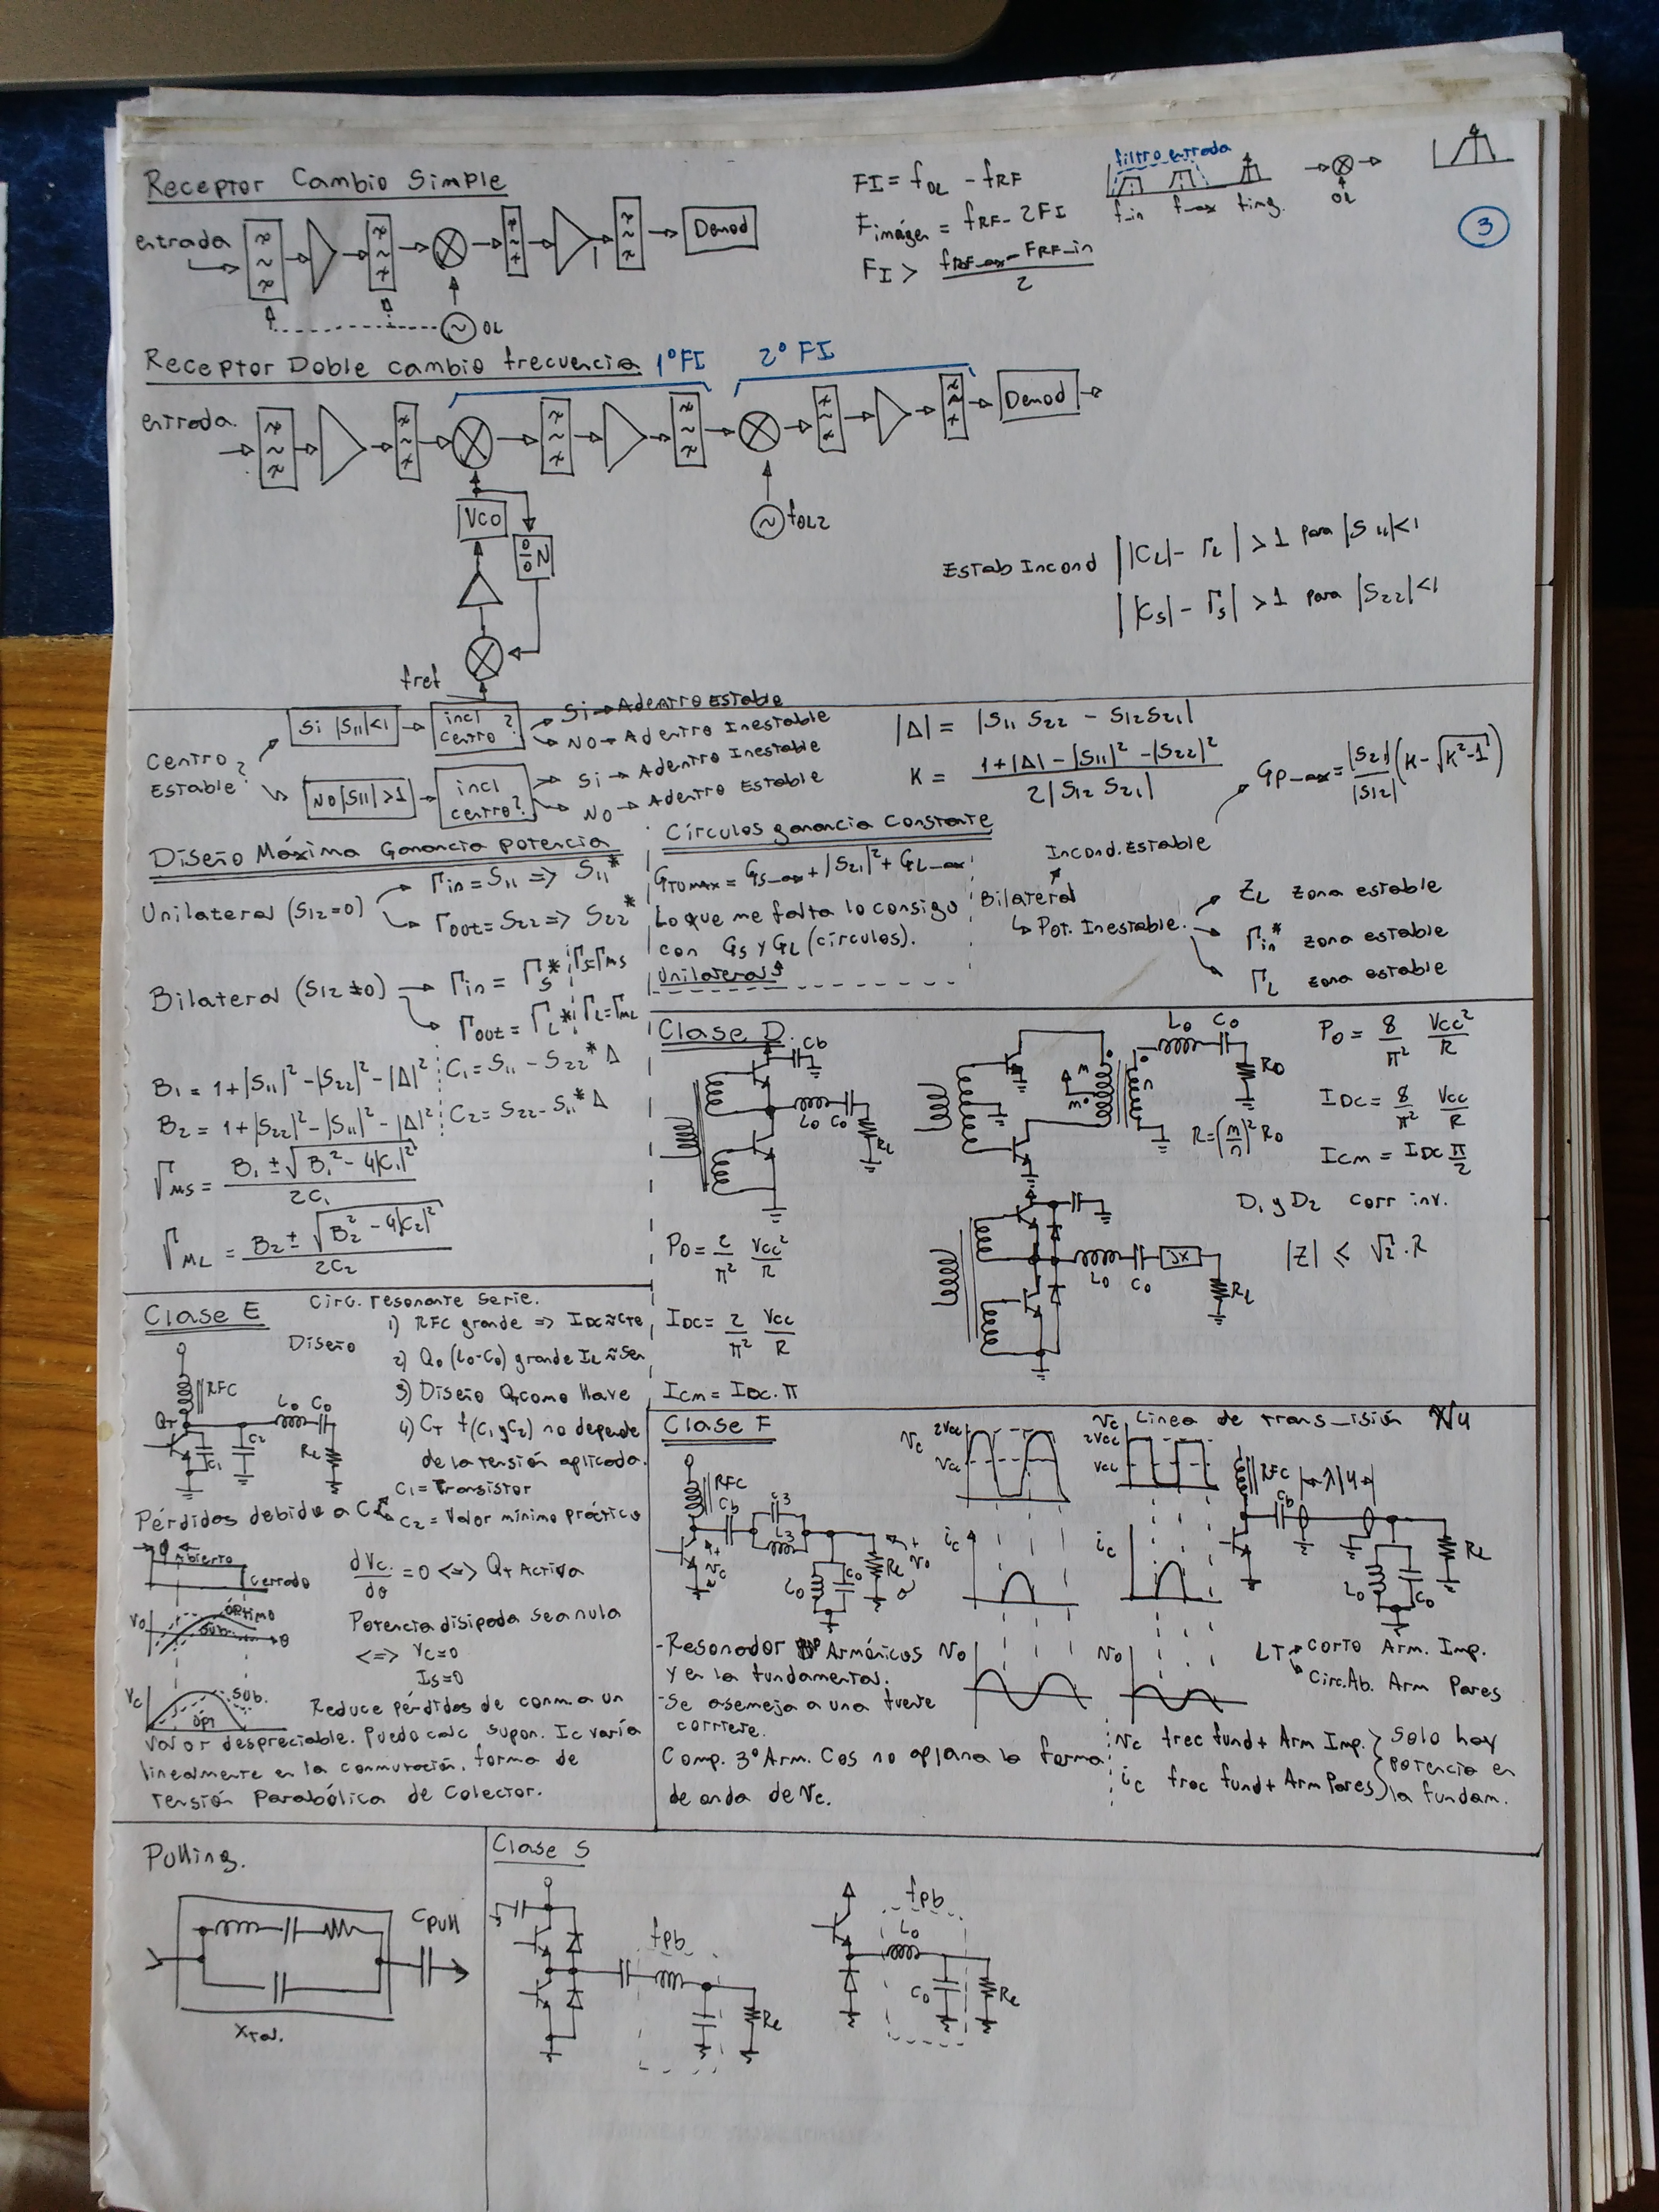 Receptor Cambio Simple
entrada
Demod
OL
FI = fOL - fRF
Fimágen = fRF - 2FI
FI > fRF_max - FRF_min / 2
filtro entrada
fmin fmax fimg.
OL
3
Receptor Doble cambio frecuencia
1º FI
2º FI
entrada
Demod
VCO
N
fOL2
fref
Estab Incond ||CL| - rL| > 1 para |S11| < 1
||CS| - rS| > 1 para |S22| < 1
Centro Estable?
Si |S11|<1
incl centro?
Si → Adentro Estable
NO → Adentro Inestable
NO |S11|>1
incl centro?
Si → Adentro Inestable
NO → Adentro Estable
|Δ| = |S11 S22 - S12 S21|
K = 1 + |Δ| - |S11|² - |S22|² / 2|S12 S21|
Gp_max = |S21| / |S12| (K - √K²-1)
Diseño Máxima Ganancia potencia
Unilateral (S12=0)
Γin = S11 => S11*
Γout = S22 => S22*
Bilateral (S12≠0)
Γin = ΓS* ΓS=ΓMS
Γout = ΓL* ΓL=ΓML
B1 = 1+|S11|² - |S22|² - |Δ|²
C1 = S11 - S22* Δ
B2 = 1+|S22|² - |S11|² - |Δ|²
C2 = S22 - S11* Δ
ΓMS = B1 ± √B1² - 4|C1|² / 2C1
ΓML = B2 ± √B2² - 4|C2|² / 2C2
Círculos ganancia Constante
GTUmax = GS_max + |S21|² + GL_max
Lo que me falta lo consigo
con GS y GL (círculos).
Unilateral
Incond. Estable
Bilateral
Pot. Inestable.
ZL zona estable
Γin* zona estable
ΓL zona estable
Clase D
Cb
L0 C0
RL
Po = 2/π² Vcc²/R
IDC = 2/π² Vcc/R
Icm = IDC . π
L0 C0
R0
m
m
n
R = (m/n)² R0
Po = 8/π² Vcc²/R
IDC = 8/π² Vcc/R
Icm = IDC π/2
D1 y D2 corr inv.
|Z| ≤ √2 . R
L0 C0
JX
RL
Clase E
Circ. resonante serie.
Diseño
1) RFC grande => IDC ≈ cte
2) Q0 (L0-C0) grande IL ≈ Sen
3) Diseño QT como llave
4) CT f(C1 y C2) no depende
de la tensión aplicada.
C1 = Transistor
C2 = Valor mínimo práctico
RFC
QT
C1
C2
L0 C0
RL
Pérdidas debido a C
Abierto
Cerrado
dVc/dθ = 0 <=> QT Activa
Vo
óptimo
Sub.
θ
Potencia disipada sea nula
<=> Vc=0
Is=0
Vc
Sub.
Opt
Reduce pérdidas de conm. a un
valor despreciable. Puedo calc supon. Ic varía
linealmente en la conmutación, forma de
tensión Parabólica de Colector.
Clase F
RFC
Cb
C3
L3
Vc
L0
C0
RL
Vo
Vc
2Vcc
Vcc
ic
Vo
Vc
2Vcc
Vcc
ic
Vo
Linea de transmisión λ/4
RFC
Cb
λ/4
L0
C0
RL
- Resonador Armónicos
y en la fundamental.
- Se asemeja a una fuente
corriente.
Comp. 3º Arm. Cos no aplana la forma
de onda de Vc.
LT
Corto Arm. Imp.
Circ. Ab. Arm Pares
Vc frec fund + Arm Imp.
ic frec fund + Arm Pares
Solo hay
potencia en
la fundam.
Pulling.
Cpull
Xtal.
Clase S
fpb
RL
fpb
L0
C0
RL